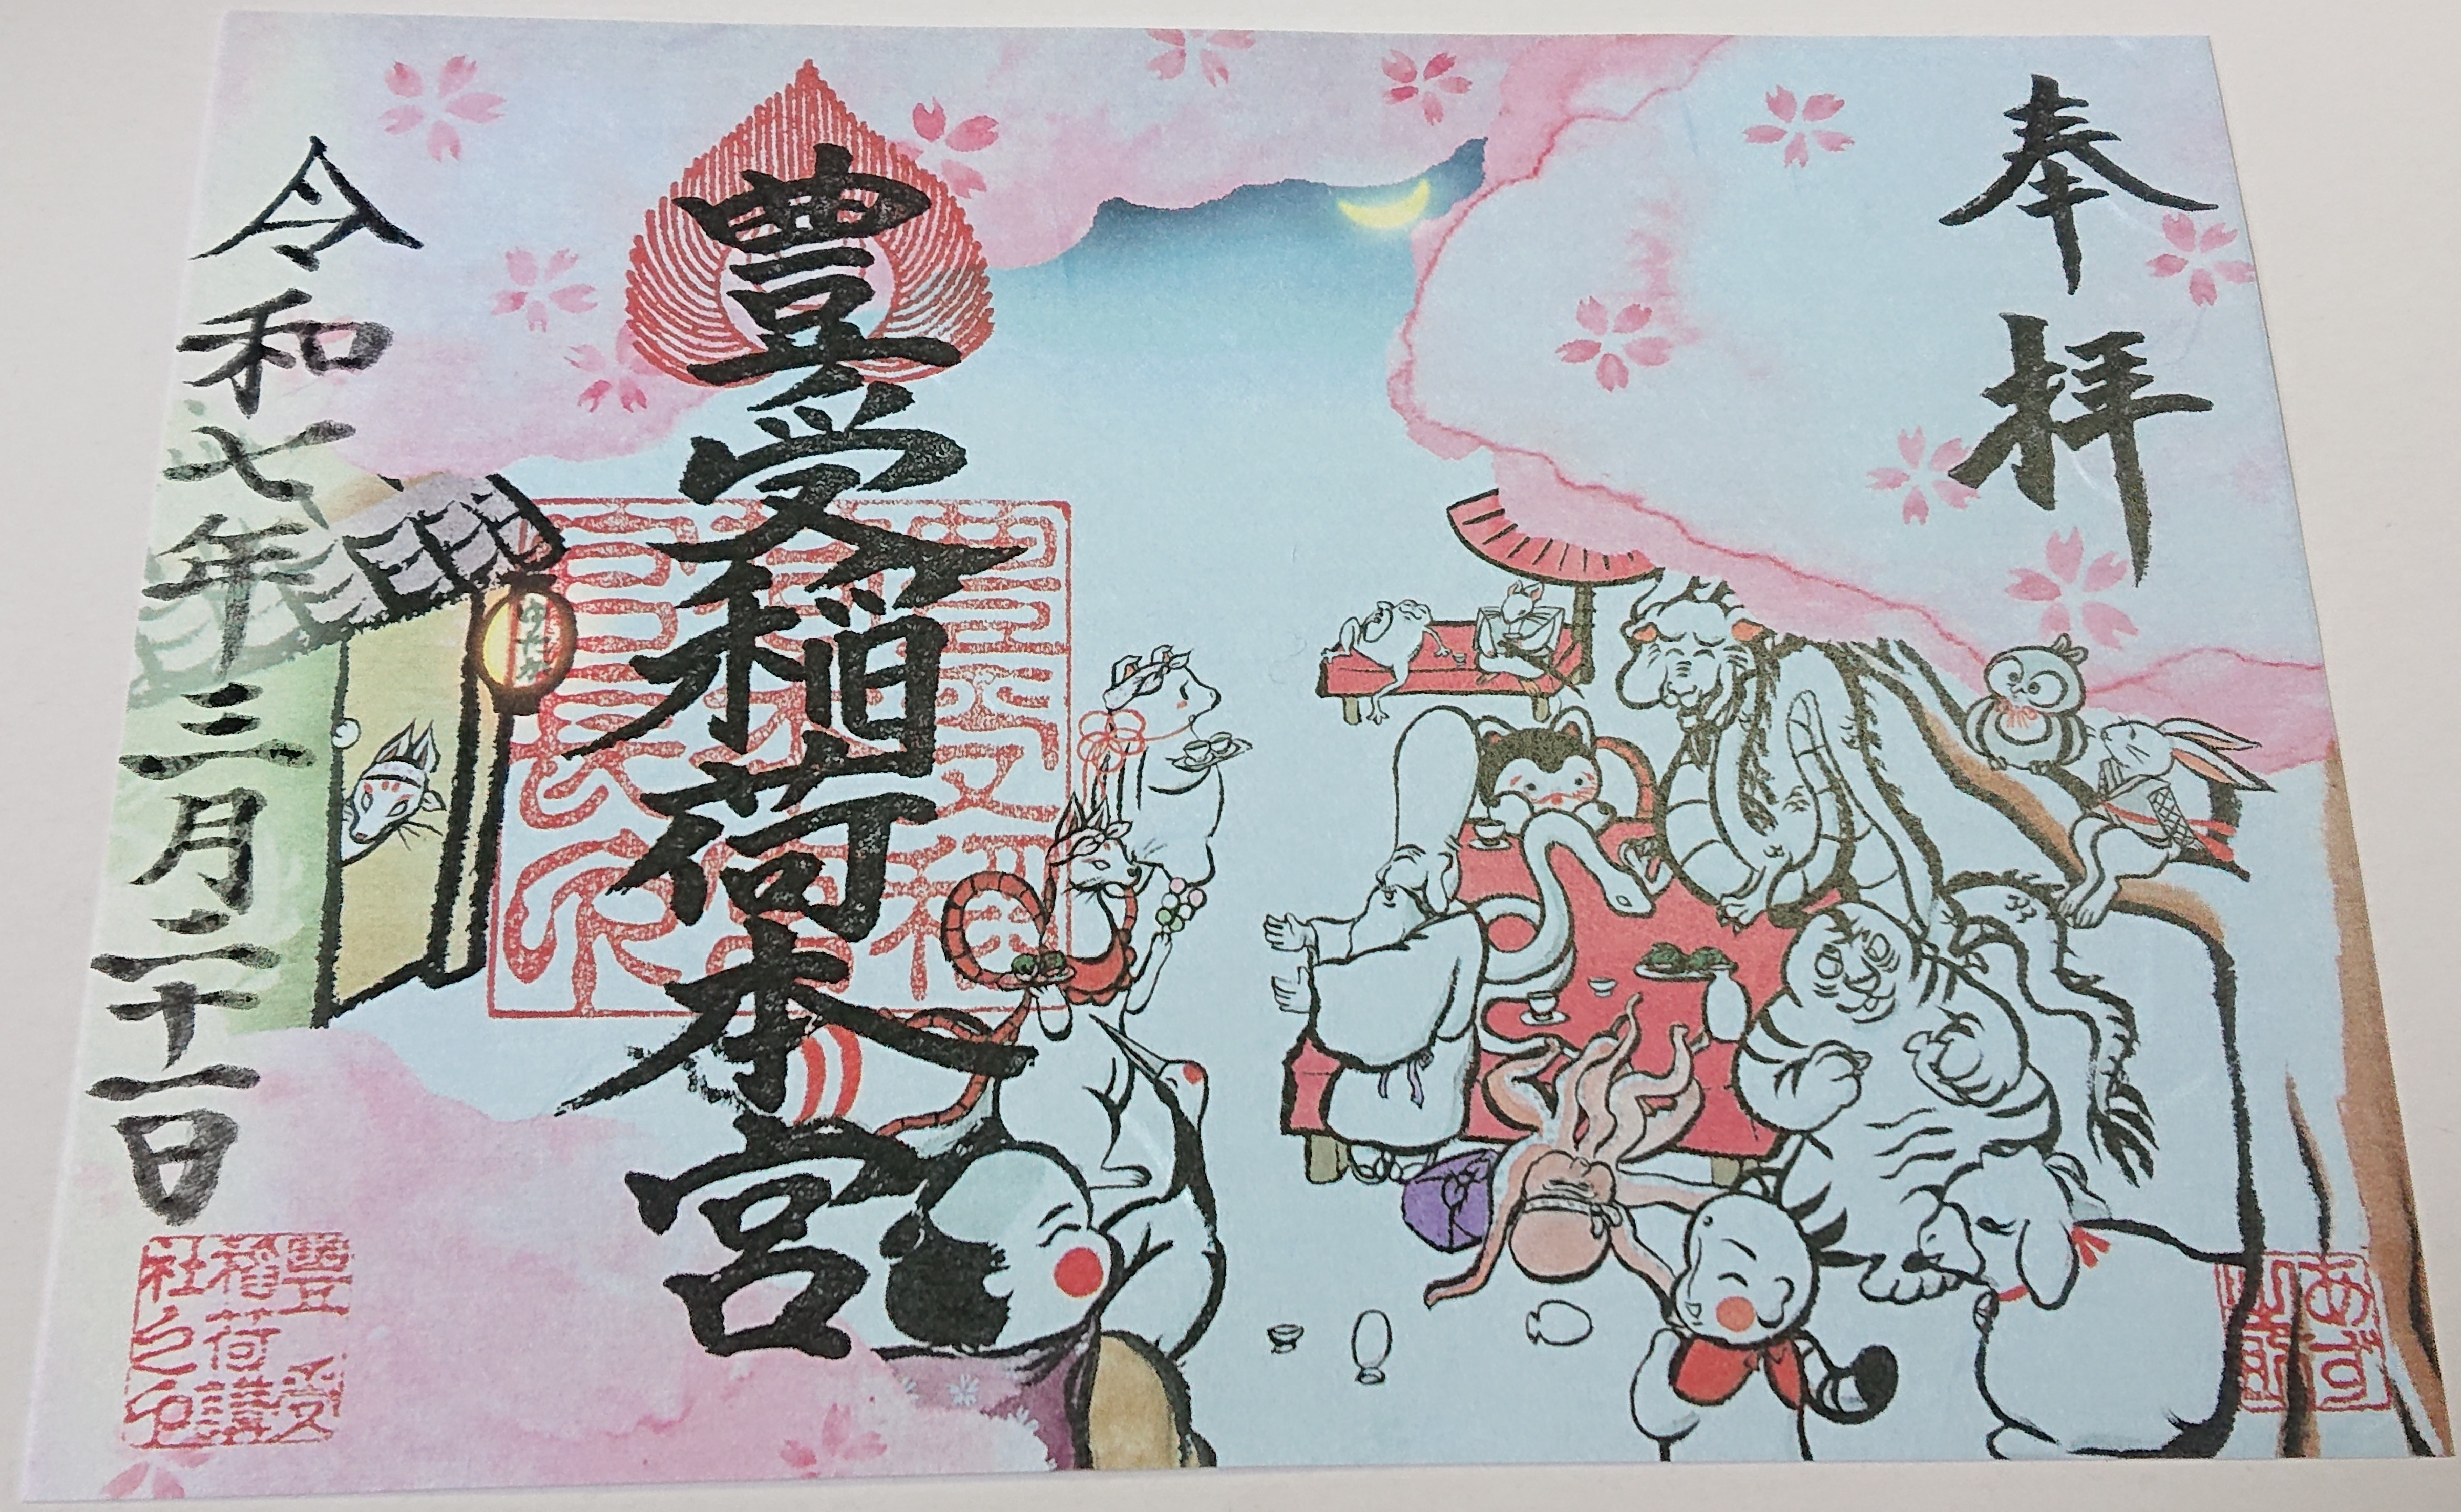 奉拝
豊受稲荷本宮
令和七年三月二十一日
ゆたか
豊受
稲荷講
社之印